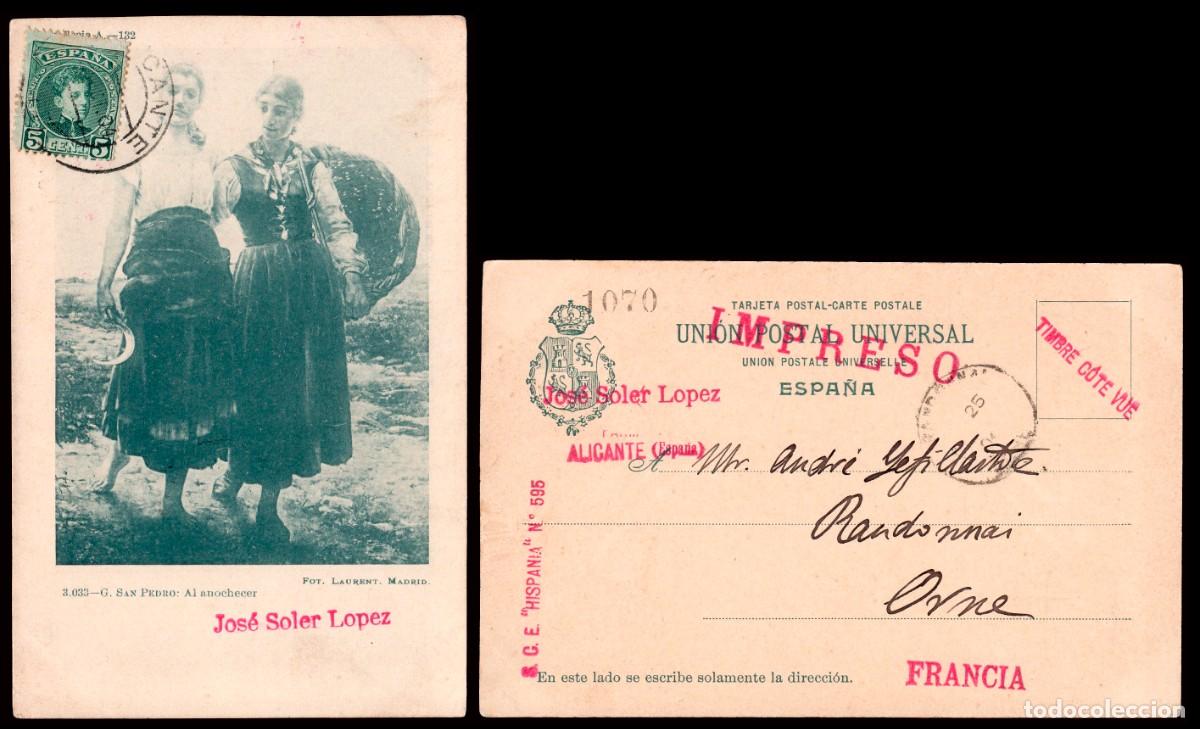 A.—132
ESPAÑA
5 CENT 5
CANTE
FOT. LAURENT. MADRID.
3.033—G. SAN PEDRO: Al anochecer
José Soler Lopez
1070
TARJETA POSTAL-CARTE POSTALE
UNIÓN POSTAL UNIVERSAL
UNION POSTALE UNIVERSELLE
ESPAÑA
IMPRESO
TIMBRE CÔTE VUE
José Soler Lopez
ALICANTE (España)
25
A Mr. André
Randonnai
Orne
S. C. E. "HISPANIA" N.º 595
En este lado se escribe solamente la dirección.
FRANCIA
todocoleccion